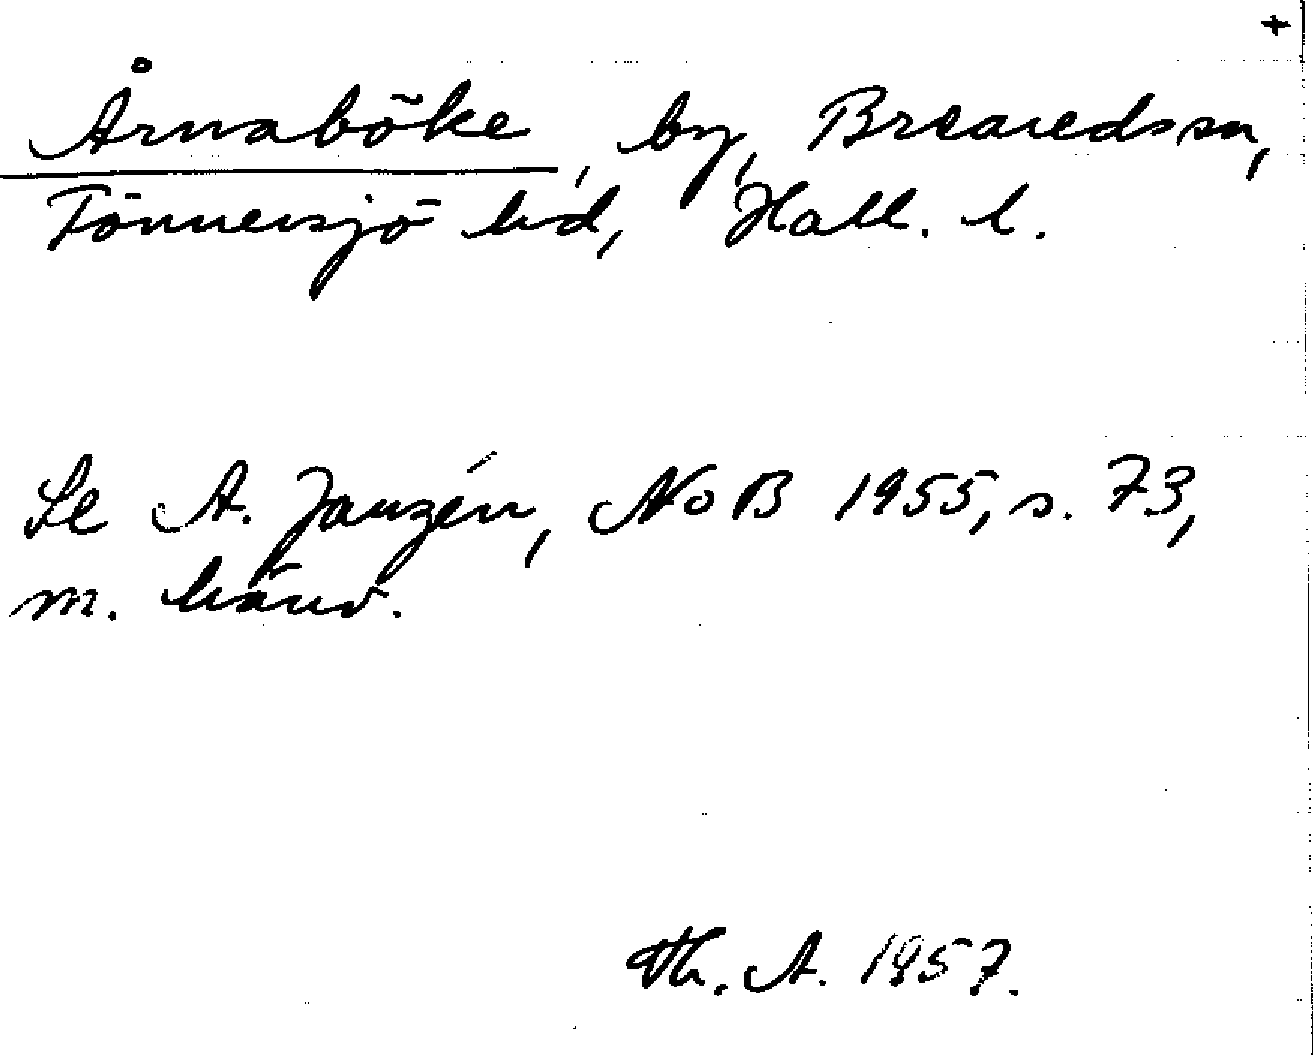 +
Årnaböke, by, Brearedssn,
Tönnersjö hd, Hall. l.
Se A. Janzén, NoB 1955, s. 73,
m. hänv.
Th. A. 1957.